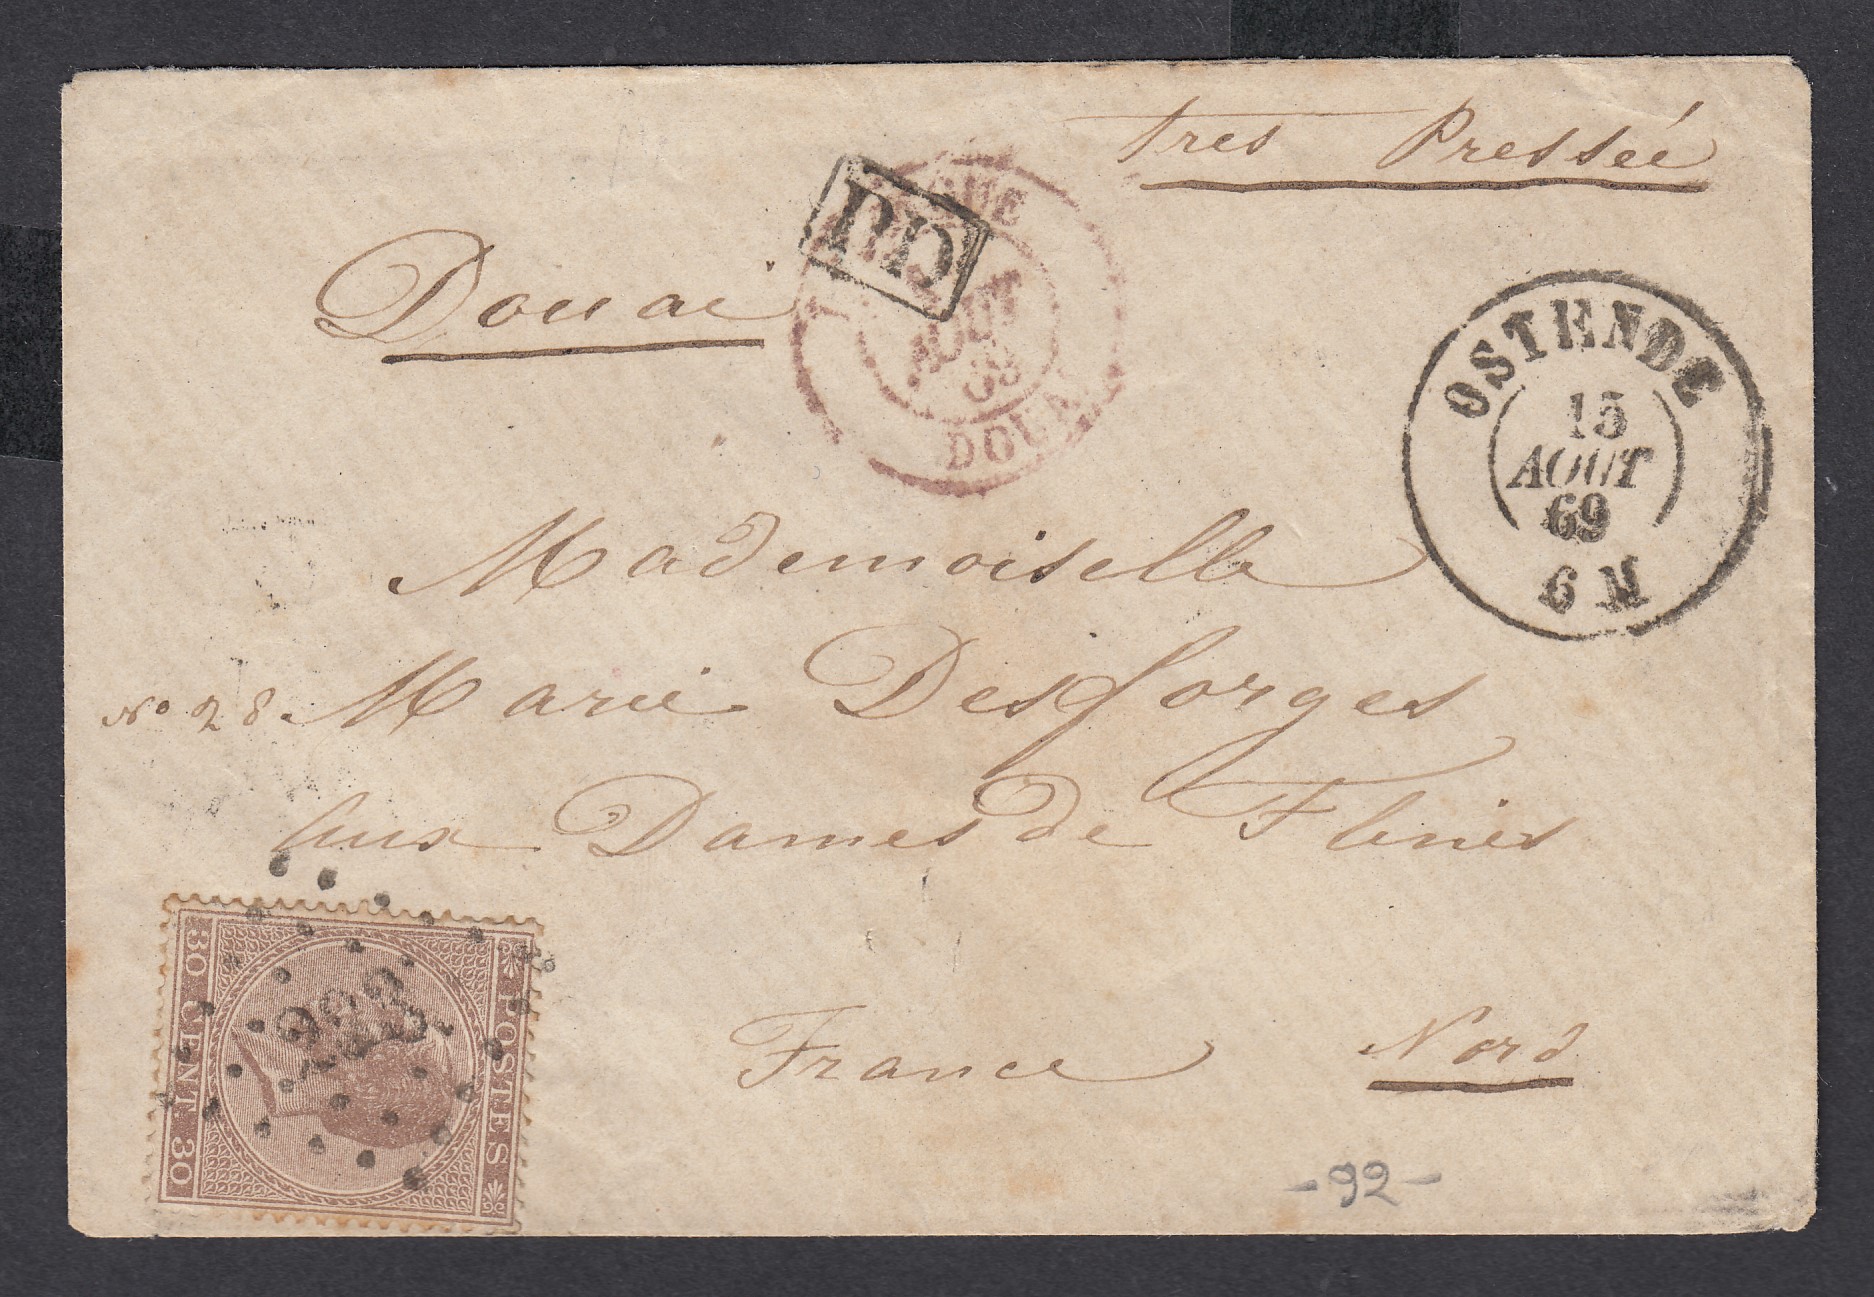 Tres Pressée
Douai
PD
OSTENDE
15
AOUT
69
6 M
AOUT
69
DOUAI
Mademoiselle
No 28 Marie Desforges
Aux Dames de Flines
France Nord
POSTES
30 CENT. 30
-92-